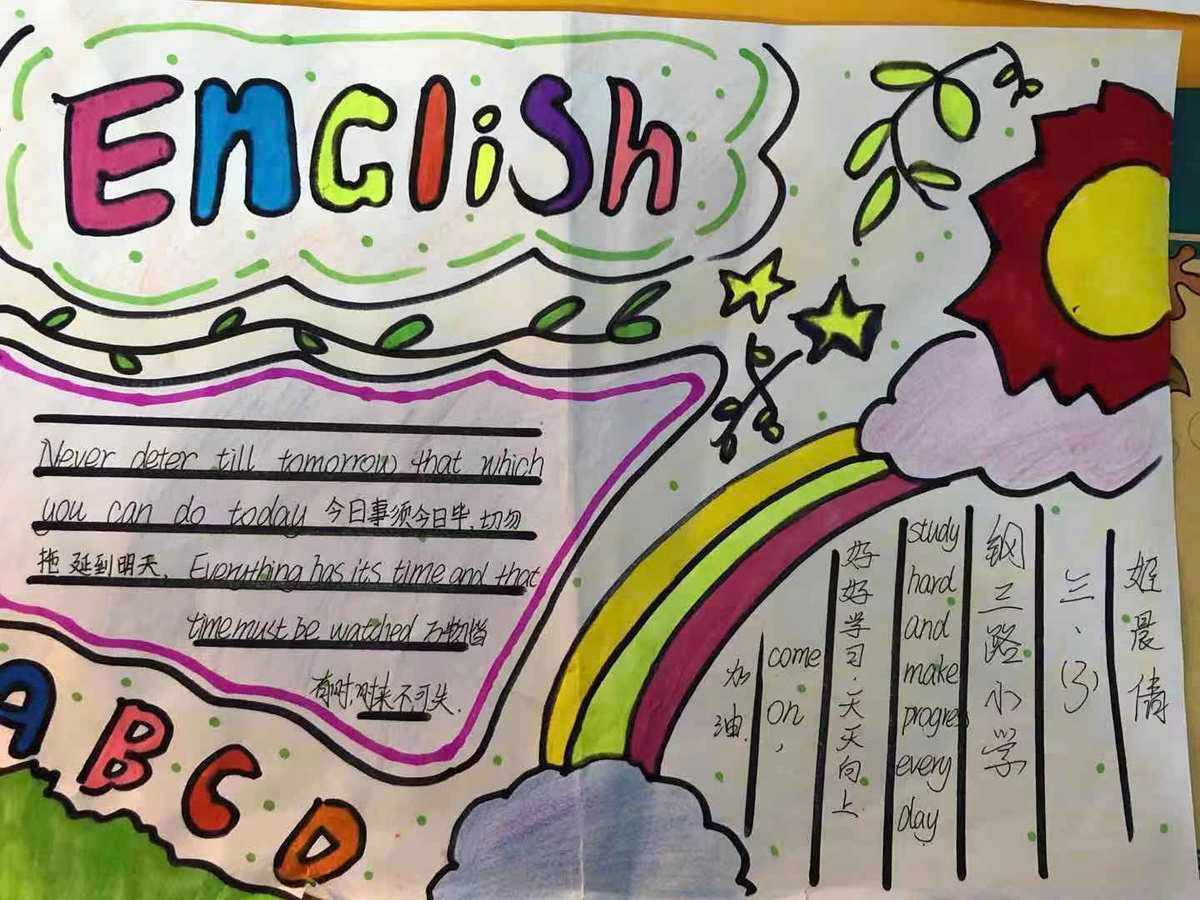 ENGlish
Never deter till tomorrow that which
you can do today 今日事须今日毕,切勿
拖延到明天, Everything has its time and that
time must be watched 万物皆
有时,时来不可失.
A B C D
姬晨倩
三、(3)
钢三路小学
study hard and make progress every day
好好学习.天天向上
come on,
加油.